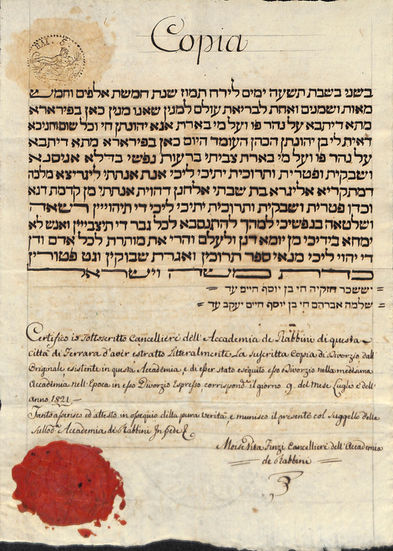 EXI. 5.
Copia
בשני בשבת תשעה ימים לירח תמוז שנת חמשת אלפים וחמש
מאות ושמנים ואחת לבריאת עולם למנין שאנו מנין כאן בפיררארא
מתא דיתבא על נהר פו ועל מי בארת אנא יהונתן חי וכל שום וחניכא
דאית לי בן יהונתן הכהן העומד היום כאן בפיררארא מתא דיתבא
על נהר פו ועל מי בארת צביתי ברעות נפשי בדלא אניסנא
ושבקית ופטרית ותרוכית יתיכי ליכי אנת אנתתי מלכה
דמתקריא אלינרא בת שבתי אלחנן דהוית אנתתי מן קדמת דנא
וכדן פטרית ושבקית ותרוכית יתיכי ליכי די תיהוייין רשאה
ושלטאה בנפשיכי למהך להתנסבא לכל גבר די תיצבייין ואנש לא
ימחא בידיכי מן יומא דנן ולעלם והרי את מותרת לכל אדם ודן
די יהוי ליכי מנאי ספר תרוכין ואגרת שבוקין וגט פטורין
כדת משה וישראל
יששכר חזקיה חי בן יוסף חיים עד
שלמה אברהם חי בן יוסף חיים יעקב עד
Certifico io sottoscritto Cancelliere dell' Accademia de Rabbini di questa
Città di Ferrara d'aver estratto litteralmente la suscritta Copia di Divorzio dall'
Originale esistente in questa Accademia, e di esser stato eseguito esso Divorzio nella medesima
Accademia nell' Epoca in esso Divorzio Espresso corrispond.e il giorno 9. del mese Luglio e dell'
anno 1821.
Tanto asserisco ed attesto in ossequio della pura verità, e munisco il presente col Suggello della
Sullod.a Accademia de Rabbini In fede
Moisè Vita Finzi Cancelliere dell' Accademia
de Rabbini